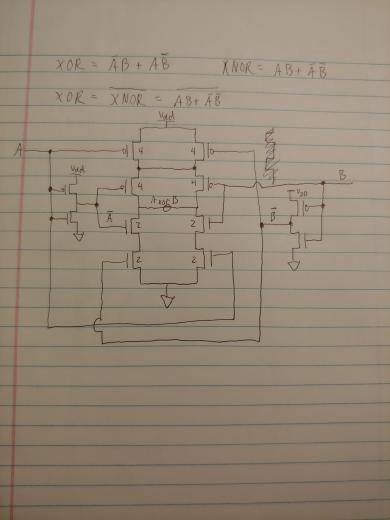 XOR = A̅B + AB̅    XNOR = AB + A̅ B̅
XOR = \overline{XNOR} = \overline{AB + A̅ B̅}
Vdd
A
4 4
Vdd
4 4
A xor B
B
VDD
A̅
2 2
B̅
2 2